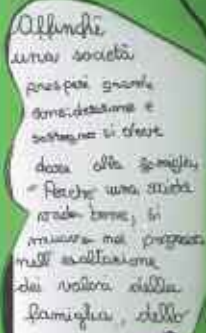 Affinché
una società
prosperi grande
considerazione e
sostegno si deve
dare alla famiglia,
"Perché una società
vada bene, si
muova nel progresso
nell'esaltazione
dei valori della
famiglia, dello